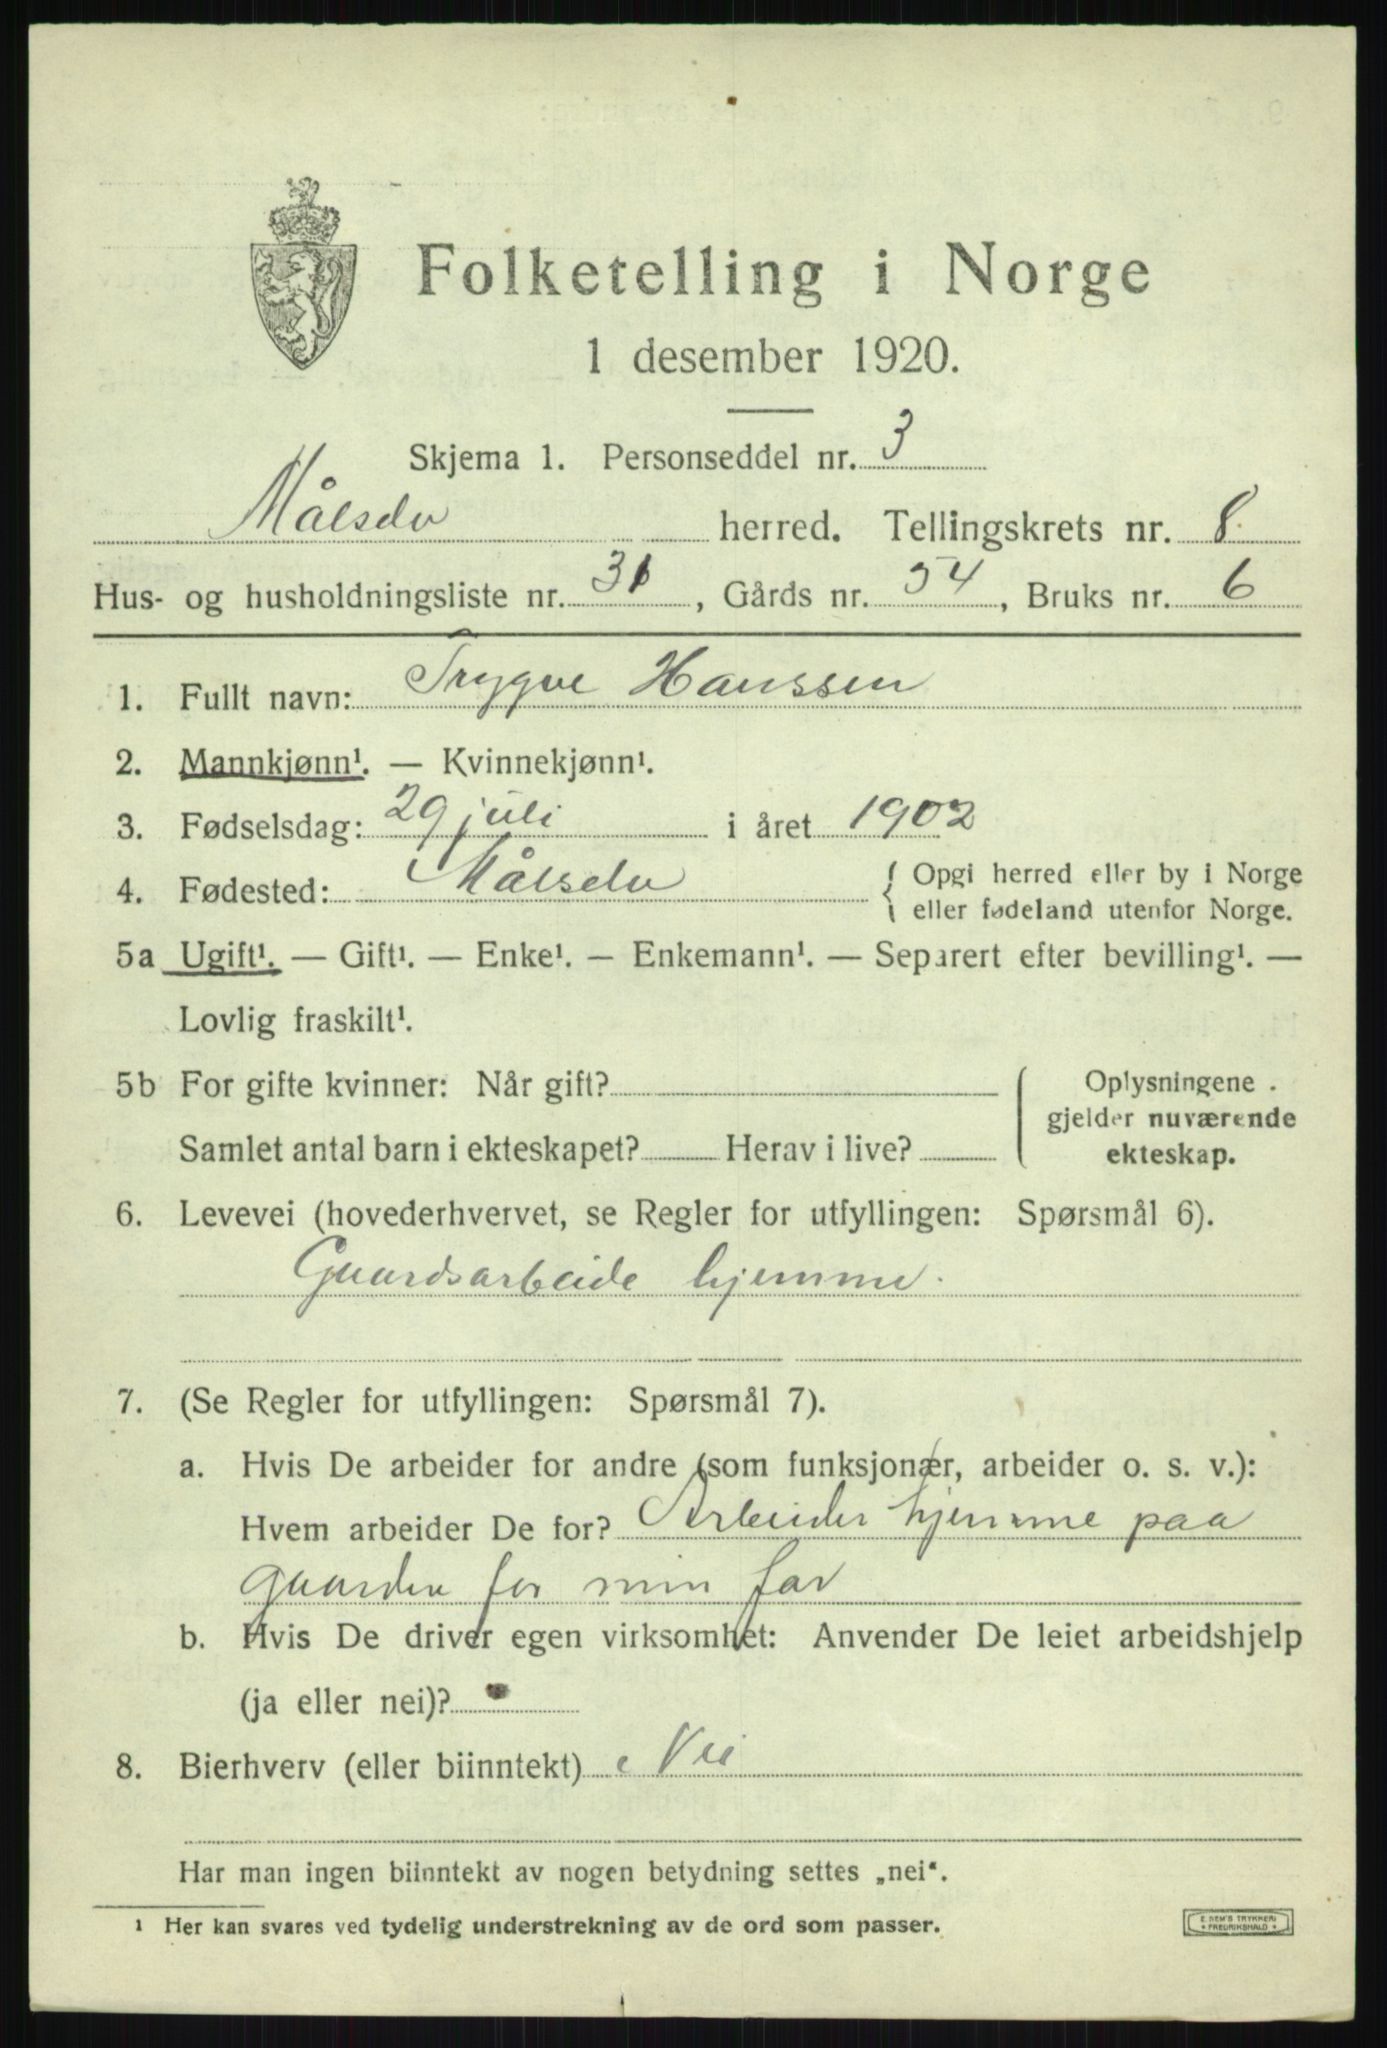 Folketelling i Norge
1 desember 1920.
Skjema 1. Personseddel nr. 3
Målselv herred. Tellingskrets nr. 8
Hus- og husholdningsliste nr. 31, Gårds nr. 54, Bruks nr. 6
1. Fullt navn: Trygve Hanssen
2. Mannkjønn¹. — Kvinnekjønn¹.
3. Fødselsdag: 29 juli i året 1902
4. Fødested: Målselv { Opgi herred eller by i Norge
eller fødeland utenfor Norge.
5a Ugift¹. — Gift¹. — Enke¹. — Enkemann¹. — Separert efter bevilling¹. —
Lovlig fraskilt¹.
5b For gifte kvinner: Når gift?
Samlet antal barn i ekteskapet? Herav i live?
Oplysningene
gjelder nuværende
ekteskap.
6. Levevei (hovederhvervet, se Regler for utfyllingen: Spørsmål 6).
Gaardsarbeide hjemme.
7. (Se Regler for utfyllingen: Spørsmål 7).
a. Hvis De arbeider for andre (som funksjonær, arbeider o. s. v.):
Hvem arbeider De for? Arbeider hjemme paa
gaarden for min far
b. Hvis De driver egen virksomhet: Anvender De leiet arbeidshjelp
(ja eller nei)?
8. Bierhverv (eller biinntekt) Nei
Har man ingen biinntekt av nogen betydning settes „nei“.
¹ Her kan svares ved tydelig understrekning av de ord som passer.
E. SEM'S TRYKKERI
* FREDRIKSHALD *